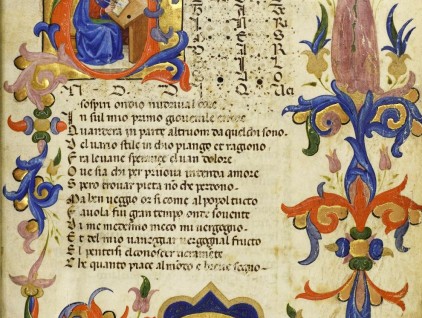 sospiri ondio nudriual core
In sul mio primo giouenile errore
Quandera in parte altruom da quel chi sono
Del uario stile in chio piango et ragiono
Fra leuane speranze el uan dolore
Oue sia chi per proua intenda amore
Spero trouar pieta no che perdono
Ma ben ueggio or si come al popol tucto
Fauola fui gran tempo onde souente
Di me medesmo meco mi uergogno
Et del mio uaneggiar uergogna el fructo
El pentersi el conoscer
Che quanto piace al mondo e breue sogno